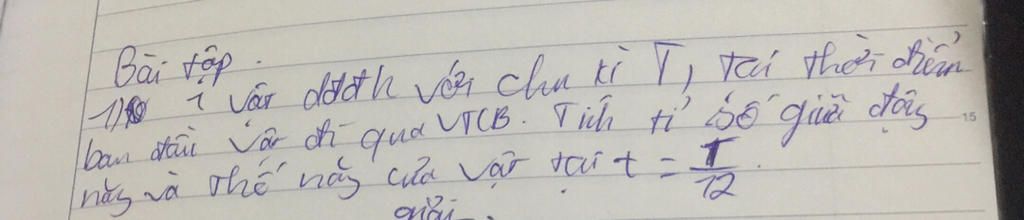 Bài tập.
1) 1 vật dđđh với chu kì T, tại thời điểm
ban đầu vật đi qua VTCB. Tính tỉ số giữa động
năng và thế năng của vật tại t = T/12.
giải.
15